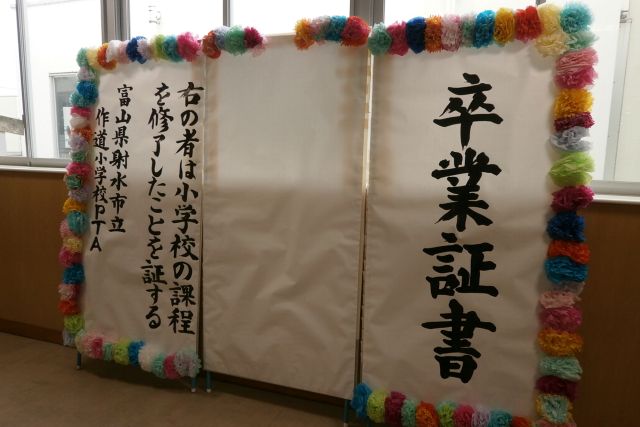 卒業証書
右の者は小学校の課程
を修了したことを証する
富山県射水市立
作道小学校PTA